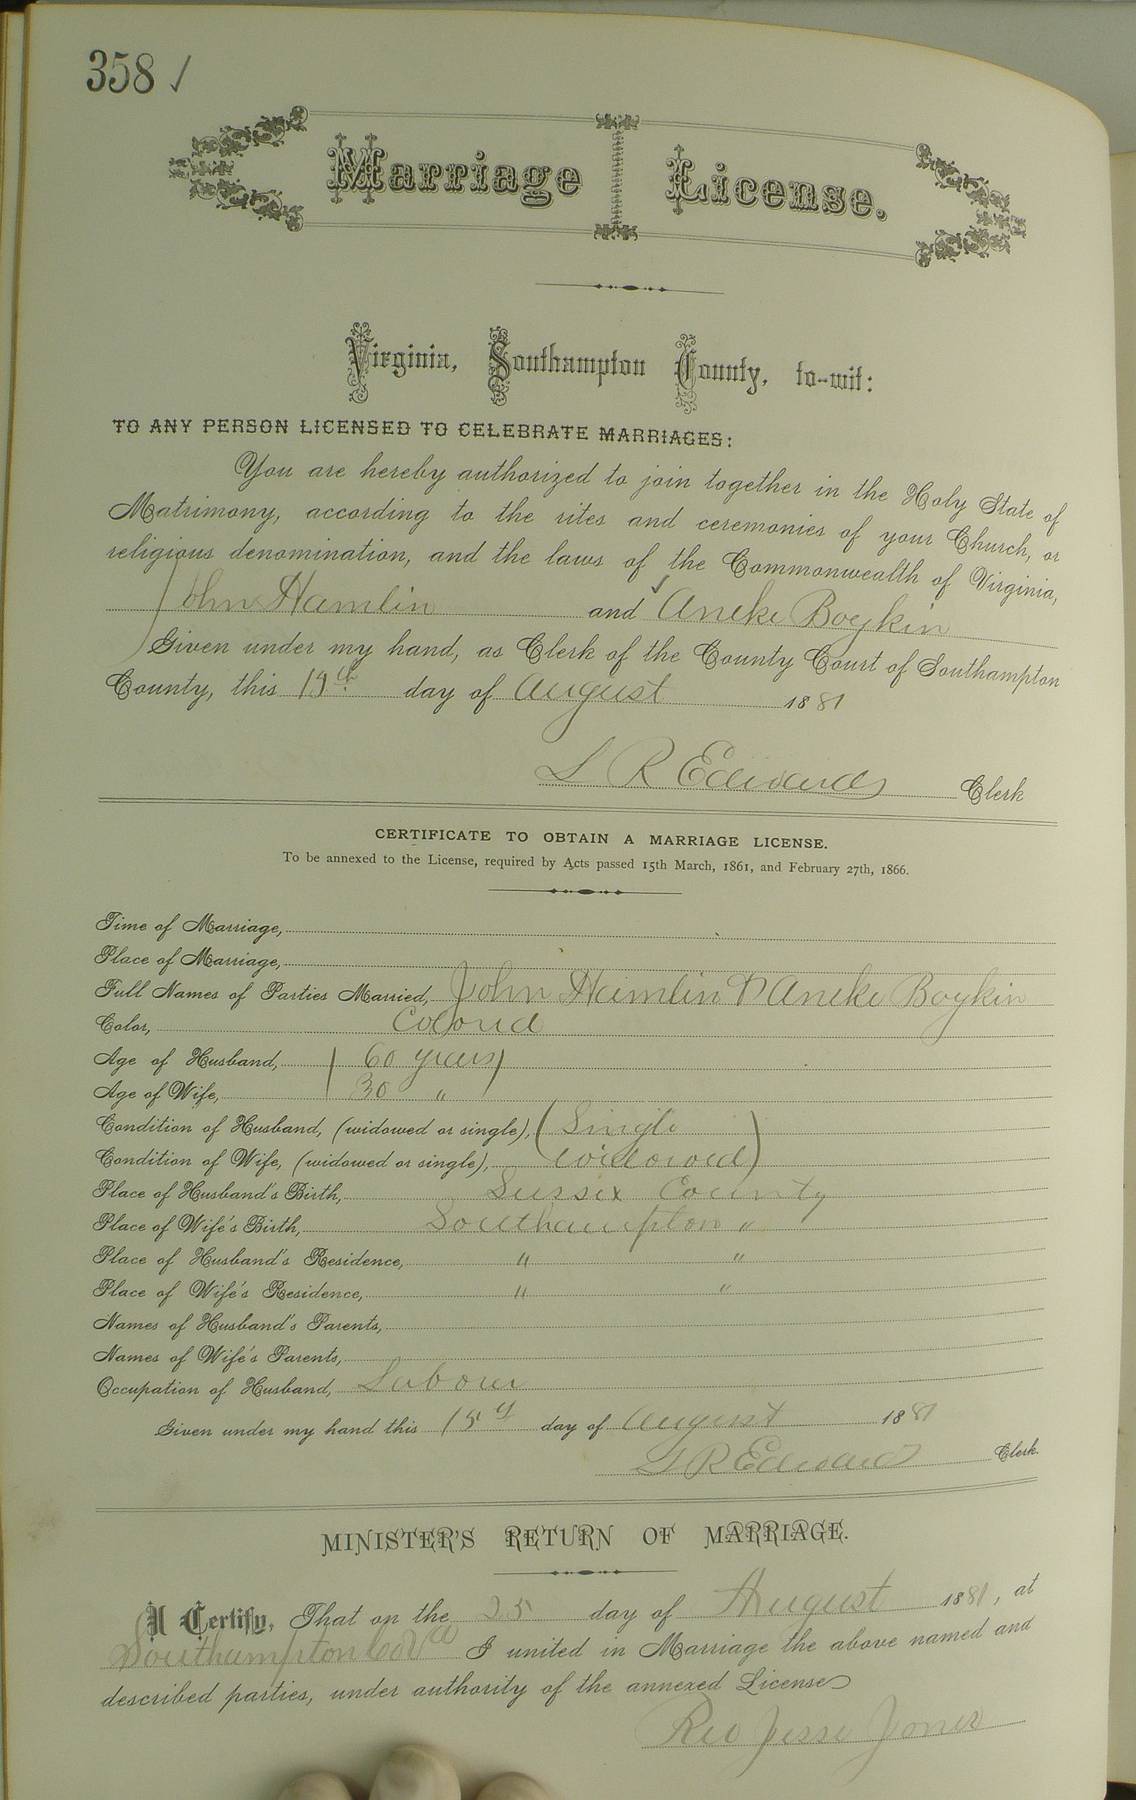 358 ✓
Marriage License.
Virginia, Southampton County, to-wit:
TO ANY PERSON LICENSED TO CELEBRATE MARRIAGES:
You are hereby authorized to join together in the Holy State of
Matrimony, according to the rites and ceremonies of your Church, or
religious denomination, and the laws of the Commonwealth of Virginia,
John Hamlin and Aneke Boykin
Given under my hand, as Clerk of the County Court of Southampton
County, this 19th day of August 1881
L R Edwards Clerk
CERTIFICATE TO OBTAIN A MARRIAGE LICENSE.
To be annexed to the License, required by Acts passed 15th March, 1861, and February 27th, 1866.
Time of Marriage,
Place of Marriage,
Full Names of Parties Married, John Hamlin & Aneke Boykin
Color, Colored
Age of Husband, 60 years
Age of Wife, 30 "
Condition of Husband, (widowed or single), Single
Condition of Wife, (widowed or single), widowed
Place of Husband's Birth, Sussex County
Place of Wife's Birth, Southampton "
Place of Husband's Residence, " "
Place of Wife's Residence, " "
Names of Husband's Parents,
Names of Wife's Parents,
Occupation of Husband, Laborer
Given under my hand this day of August 1881
L R Edwards Clerk.
MINISTER'S RETURN OF MARRIAGE.
I Certify, That on the 25 day of August 1881, at
Southampton Co Va I united in Marriage the above named and
described parties, under authority of the annexed License
Rev Jesse Jones